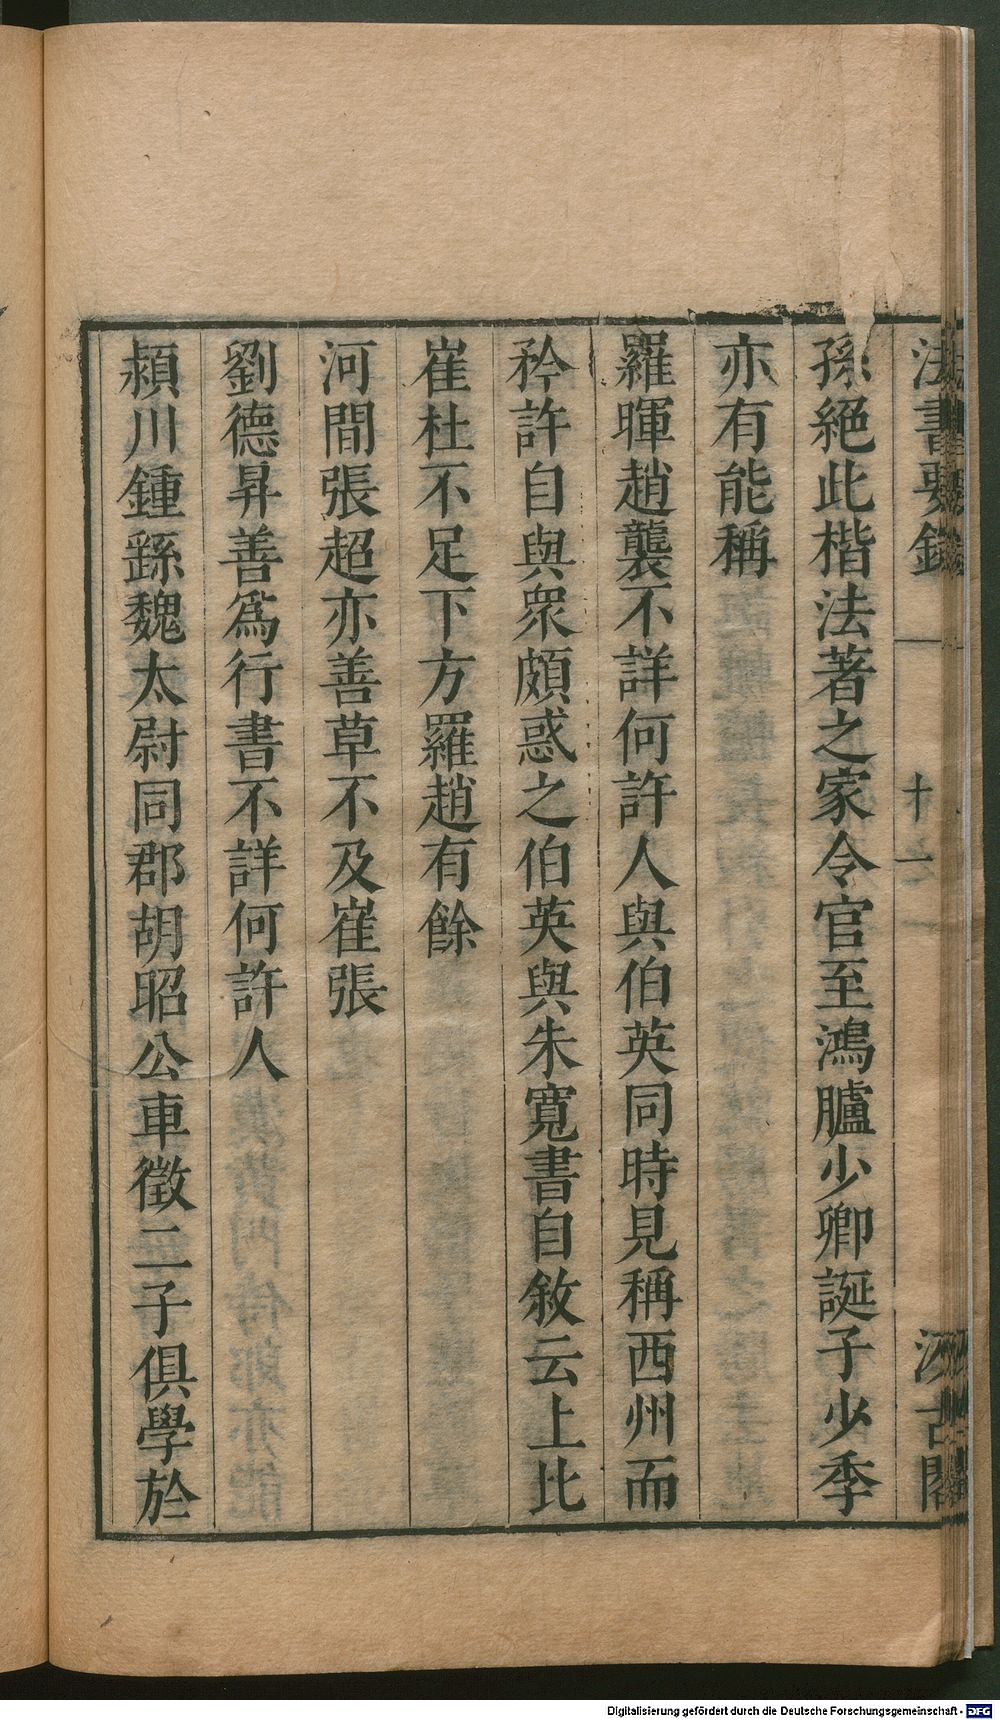 法書要錄
十一
汲古閣
孫絕此楷法著之家令官至鴻臚少卿誕子少季
亦有能稱
羅暉趙襲不詳何許人與伯英同時見稱西州而
矜許自與衆頗惑之伯英與朱寬書自敘云上比
崔杜不足下方羅趙有餘
河間張超亦善草不及崔張
劉德昇善爲行書不詳何許人
潁川鍾繇魏太尉同郡胡昭公車徵二子俱學於
Digitalisierung gefördert durch die Deutsche Forschungsgemeinschaft - DFG